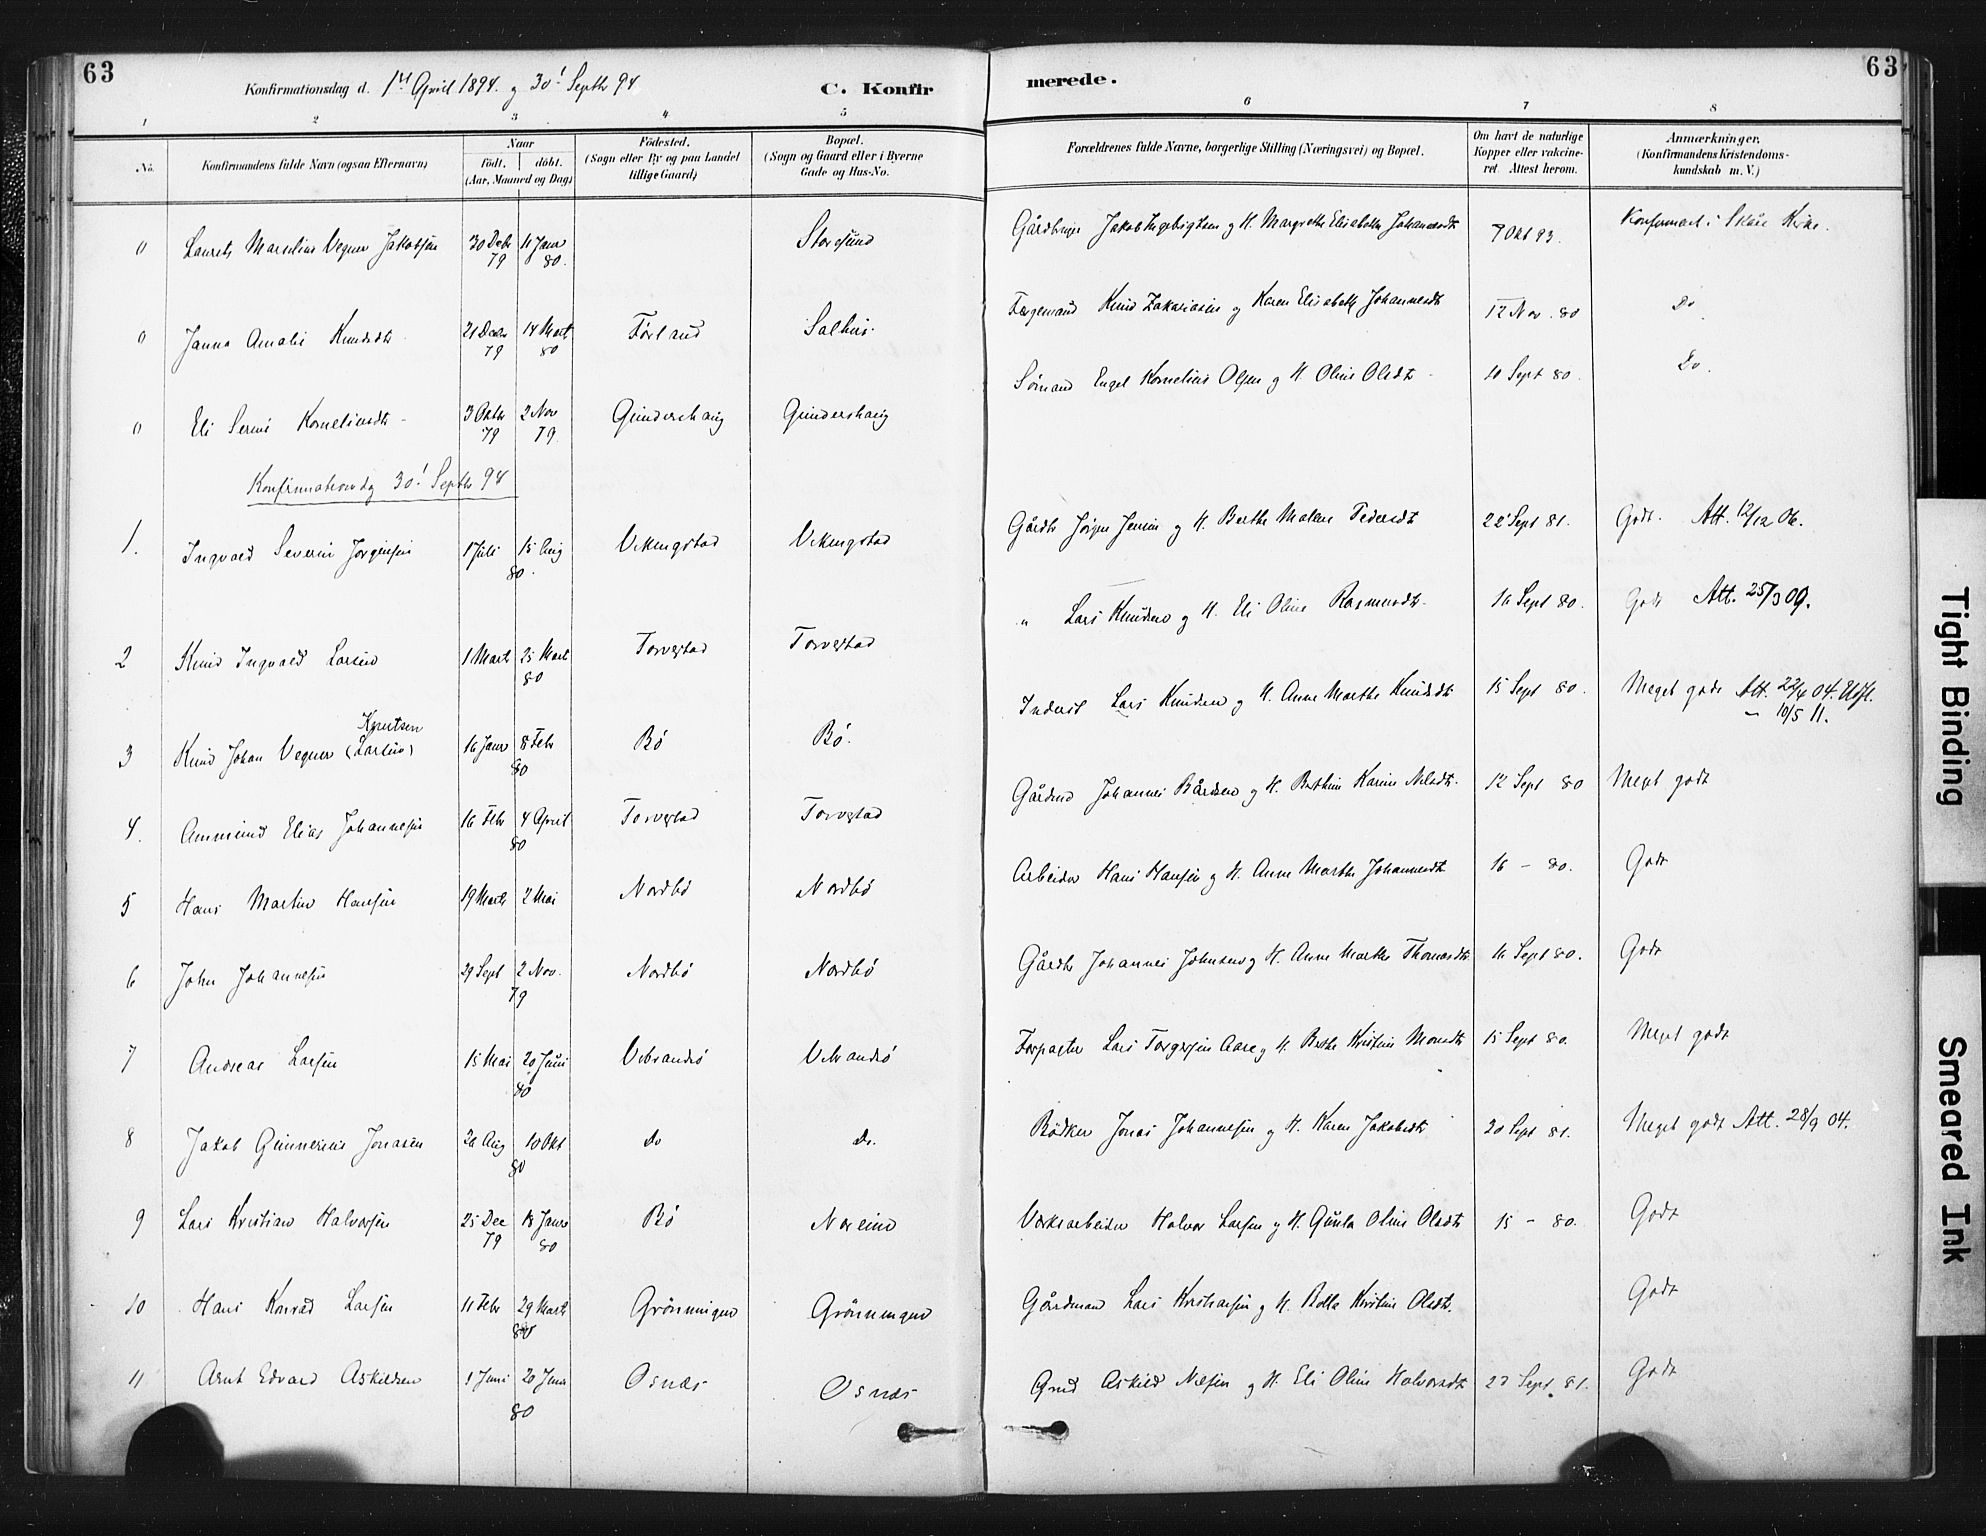 63
Konfirmationsdag d. 1st April 1894. og 30! Septbr 94
C. Konfirmerede.
63
1 2 3 4 5 6 7 8
No.
Konfirmandens fulde Navn (ogsaa Efternavn)
Naar
Født. døbt.
(Aar, Maaned og Dag)
Fødested.
(Sogn eller By og paa Landet
tillige Gaard)
Bopæl.
(Sogn og Gaard eller i Byerne
Gade og Hus-No.
Forældrenes fulde Navne, borgerlige Stilling (Næringsvei) og Bopæl.
Om havt de naturlige
Kopper eller vakcine-
ret. Attest herom.
Anmærkninger.
(Konfirmandens Kristendoms-
kundskab m. V.)
0 Laurits Marselius Vegner Jakobsen 30 Decbr 79 11 Janr 80. Storesund Jakob Ingebrigtsen og H. Margrethe Elisabeth Johannesdt 7 Okt 93. Konfirmert i Skåre Kirke.
0 Janna Amalie Knudsdt 21 Decbr 79 14 Mart 80 Førland Salhus. Færgemand Knud Zakariasen og Karen Elisabeth Johannesdt 12 Nov. 80 Do
0 Eli Serine Korneliusdt 3 Oktbr 79 2 Nov 79 Gunderschaug Gundershaug Sømand Engel Kornelius Olsen og H. Oline Olsdt 10 Sept 80. Do.
Konfirmationsdg 30! Septbr 94
1. Ingvald Severin Jørgensen 1 Juli 15 Aug 80. Vikingstad Vikingstad Gårdbr Jørgen Jensen og H. Berthe Malene Pedersdt 22 Sept 81. Godt. Att. 12/12 06.
2 Knud Ingvald Larsen 1 Mart 25 Mart 80 Torvestad Torvestad " Lars Knudsen og H. Eli Oline Rasmusdt. 16 Sept 80. Godt Att. 25/3 09.
3 Knud Johan Vegner (Larsen) Knutsen 16 Janr 8 Febr 80 Bö Bö. Inderst Lars Knudsen og H. Anne Marthe Knudsdt 15 Sept 80. Meget godt Att. 22/4 04. Udfl.
– 10/5 11.
4. Ammund Elias Johannesen 16 Febr 4 April 80 Torvestad Torvestad Gårdmd Johannes Bårdsen og H. Berthine Karine Nilsdt. 12 Sept 80 Meget godt
5 Hans Martin Hansen 19 Marts 2 Mai Nordbö Nordbö Arbeider Hans Hansen og H. Anne Marthe Johannesdt 16 – 80. Godt
6 John Johannesen 29 Sept 2 Nov. 79 Nordbö Nordbö Gårdbr Johannes Johnsen og H. Anne Marthe Thomasdt 16 Sept 80. Godt
7 Andreas Larsen 15 Mai 20 Juni 80 Vibrandsö Vibrandsö Forpagter Lars Torgersen Aare og H. Berthe Kristine Monsdt 15 Sept 80. Meget godt
8 Jakob Gunnerius Jonasen 20 Aug 10 Okt 80 Do Do. Bödker Jonas Johannesen og H. Karen Jakobsdt 20 Sept 81. Meget godt Att. 28/9 04.
9 Lars Kristian Halvorsen 25 Dec 79 18 Janr 80 Bö Noreim Værksarbeider Halvor Larsen og H. Gunla Oline Olsdt 15 – 80. Godt
10 Hans Konrad Larsen 11 Febr 29 Marts 80 Grönningen Grönningen Gårdmand Lars Kristiansen og H. Bolla Kirstine Olsdt. Godt
11 Arnt Edvard Askildsen 1 Juni 20 Juni 80 Osnæs Osnæs Grmd Askild Nilsen og H. Eli Oline Halvorsdt 27 Sept. 81. Godt
Tight Binding
Smeared Ink